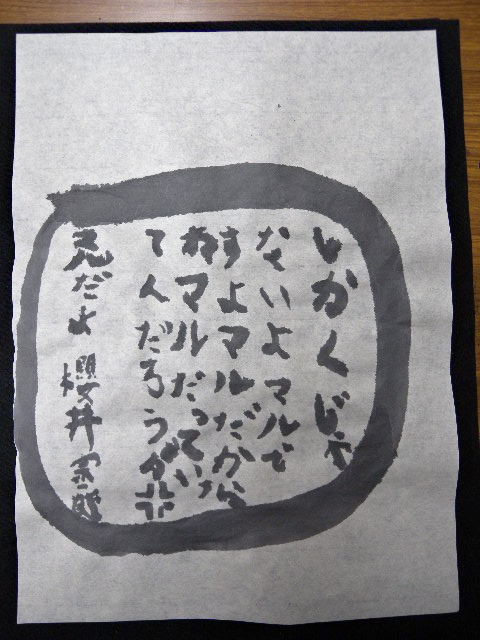 しかくじゃ
ないよマルで
すよマルだから
ねマルだっていっ
てんだろうが
だよ 櫻井